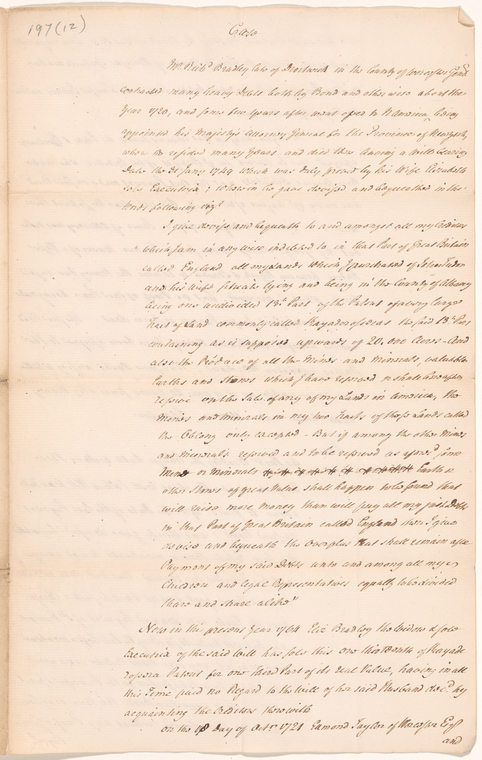 197(12)
Case
Mr Richd Bradley late of Droitwich in the County of Worcester Gent
contracted many heavy Debts both by Bond and otherwise about the
Year 1720, and some two years after went over to America, being
appointed his Majesty's Attorney General for the Province of New York
where he resided many Years and died there leaving a Will bearing
Date the 31 Jany 1749 which was duly proved by his Wife Elizabeth
sole Executrix; wherein he gave devised and bequeathed in the
Words following vizt
I give devise and bequeath to and amongst all my Creditors
which I am in any wise indebted to in that Part of Great Britain
called England all my Lands which I purchased of John
and his Wife situate lying and being in the County of Albany
being one undivided 13th Part of the Patent of a very large
Tract of Land commonly called Kayaderosseras the said 13th Part
containing as is supposed upwards of 20,000 Acres - And
also the Produce of all the Mines and Minerals, valuable
Earths and Stones which I have reserved or shall hereafter
reserve on the Sale of any of my Lands in America, the
Mines and Minerals in my two Tracts of those Lands called
the Oblong only excepted - But if among the other Mines
and Minerals reserved and to be reserved as aforesd some
Mines or Minerals Earths or
other Stones of great Value shall happen to be found that
will raise more money than will pay all my just Debts
in that Part of Great Britain called England then I give
devise and bequeath the Overplus that shall remain after
Payment of my said Debts unto and among all my
Children and legal Representatives equally to be divided
share and share alike"
Now in this present Year 1764 Eliz Bradley the Widow & sole
Executrix of the said Will has sold this one thirteenth of Kayade
rossera Patent for one third Part of its real Value, having in all
this Time paid no Regard to the Will of her said Husband decd by
acquainting the Creditors therewith
On the 18 Day of Octr 1721 Edmond Taylor of Worcester Esqr
and